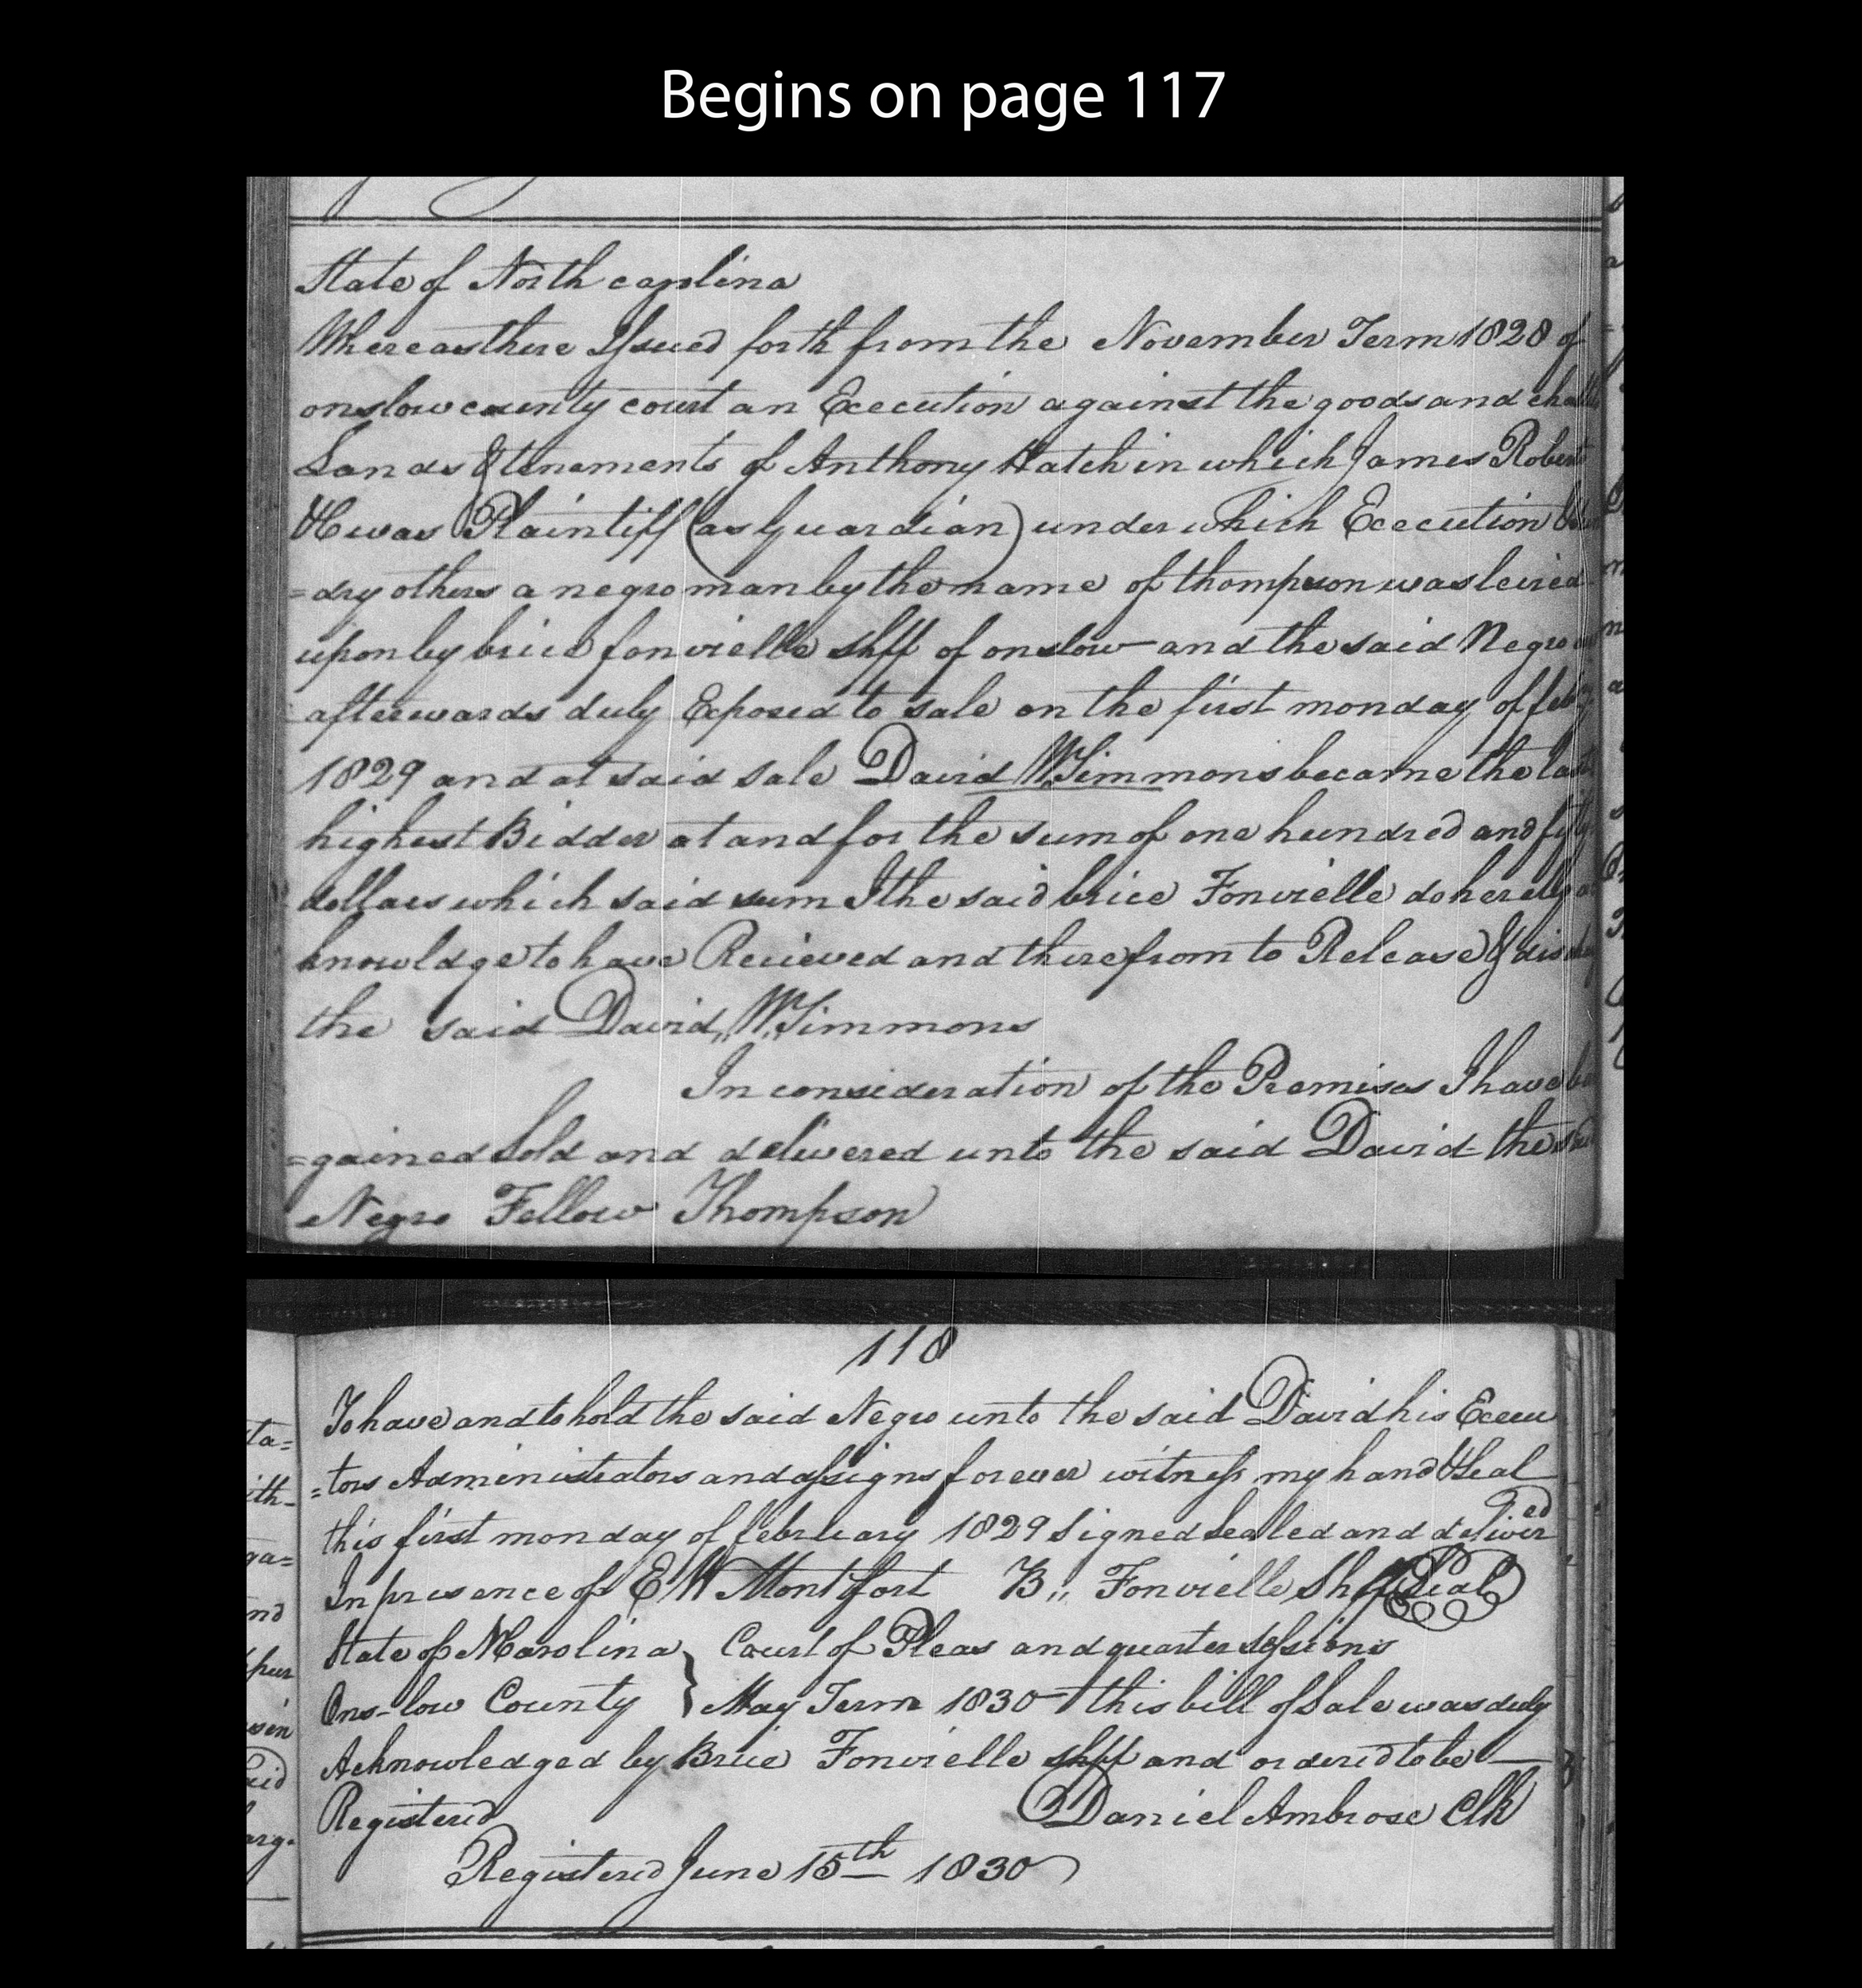 Begins on page 117
State of North carolina
Whereas there Issued forth from the November Term 1828 of
onslow county court an Execution against the goods and
Lands & tenements of Anthony Hatch in which James
was Plaintiff (as Guardian) under which Execution
=dry others a negro man by the name of thompson was leived
upon by brice fonvielle shff of onslow and the said Negro
afterwards duly Exposed to sale on the first monday of feby
1829 and at said sale David W Simmons became the
highest Bidder at and for the sum of one hundred and fifty
dollars which said sum I the said brice Fonvielle do hereby
knowldge to have Recieved and therefrom to Release &
the said David,, W,, Simmons
In consideration of the Premises I have
=gained Sold and delivered unto the said David the
Negro Fellow Thompson
118
To have and to hold the said Negro unto the said David his Execu
=tors Administrators and assigns forever witness my hand & Seal
this first monday of february 1829 Signed Sealed and delivered
In presence of E W Montfort B,, Fonvielle Shff Seal
State of N Carolina } Court of Pleas and quarter sessions
Ons-low County } May Term 1830 this bill of Sale was duly
Acknowledged by Brice Fonvielle shff and ordered to be
Registered Daniel Ambrose Clk
Registered June 15th 1830